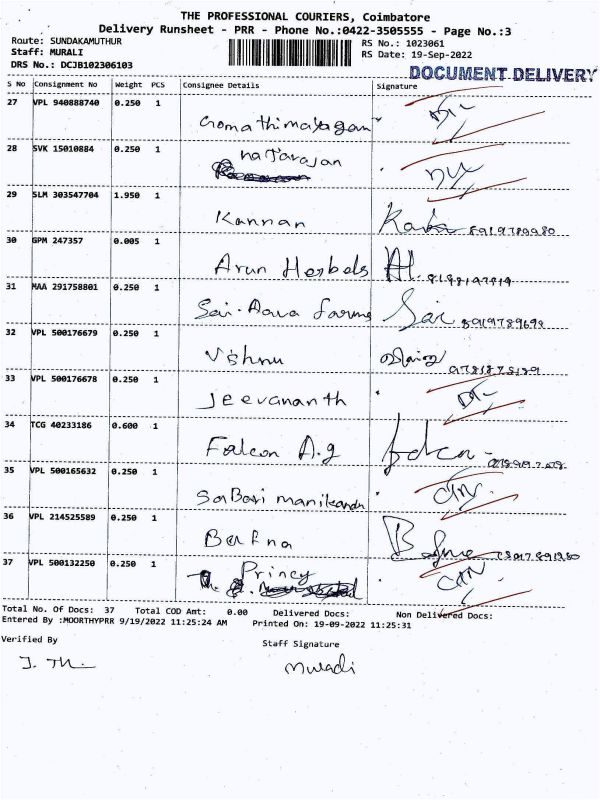 THE PROFESSIONAL COURIERS, Coimbatore
Delivery Runsheet - PRR - Phone No.:0422-3505555 - Page No.:3
Route: SUNDAKAMUTHUR
RS No.: 1023061
Staff: MURALI
RS Date: 19-Sep-2022
DRS No.: DCJB102306103
DOCUMENT DELIVERY
S No Consignment No Weight PCS Consignee Details Signature
27 VPL 940888740 0.250 1
Gomathinayagam
28 SVK 15010884 0.250 1
natarajan
29 SLM 303547704 1.950 1
Kannan
30 GPM 247357 0.005 1
Arun Herbels
31 MAA 291758801 0.250 1
Sai
32 VPL 500176679 0.250 1
Vishnu
33 VPL 500176678 0.250 1
Jeevananth
34 TCG 40233186 0.600 1
Falcon A.g
35 VPL 500165632 0.250 1
Sabari manikandn
36 VPL 214525589 0.250 1
Bafna
37 VPL 500132250 0.250 1
Princy
Total No. Of Docs: 37 Total COD Amt: 0.00 Delivered Docs: Non Delivered Docs:
Entered By :MOORTHYPRR 9/19/2022 11:25:24 AM Printed On: 19-09-2022 11:25:31
Verified By
Staff Signature